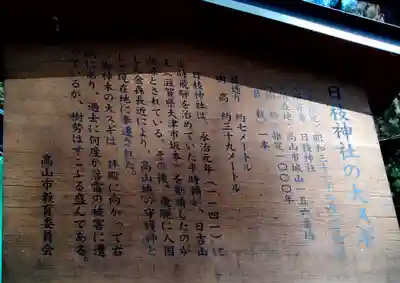 日枝神社の大スギ
昭和三十
日枝神社
高山市城山一五六番地
推定一〇〇〇年
員数 一本
目通り 約七メートル
樹高 約三十九メートル
日枝神社は、永治元年(一一四一)に
飛騨を治めていた平時輔が、日吉山
王(滋賀県大津市坂本)を勧請したのが
とされている。その後、飛騨に入国
した金森長近により、高山城の守護神と
して現在地に奉遷された。
御神木の大スギは、拝殿に向かって右
にあり、過去に何度か落雷の被害に遭
っているが、樹勢はすこぶる盛んである。
高山市教育委員会